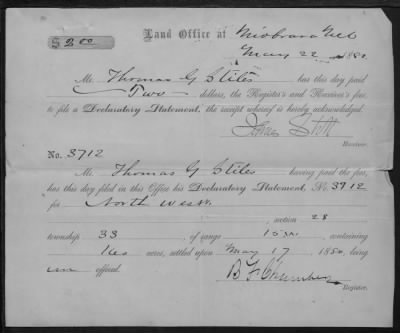 $ 2.00
Land Office at Niobrara Neb
May 22, 1880.
Mr. Thomas G Stiles has this day paid
Two dollars, the Register's and Receiver's fees,
to file a Declaratory Statement, the receipt whereof is hereby acknowledged.
James Stott
Receiver.
No. 3712
Mr. Thomas G Stiles having paid the fees,
has this day filed in this Office his Declaratory Statement, No. 3712
for North West
, section 28
township 33 , of range 15 containing
160 acres, settled upon May 17, 1880, being
un offered.
B F Chambers
Register.